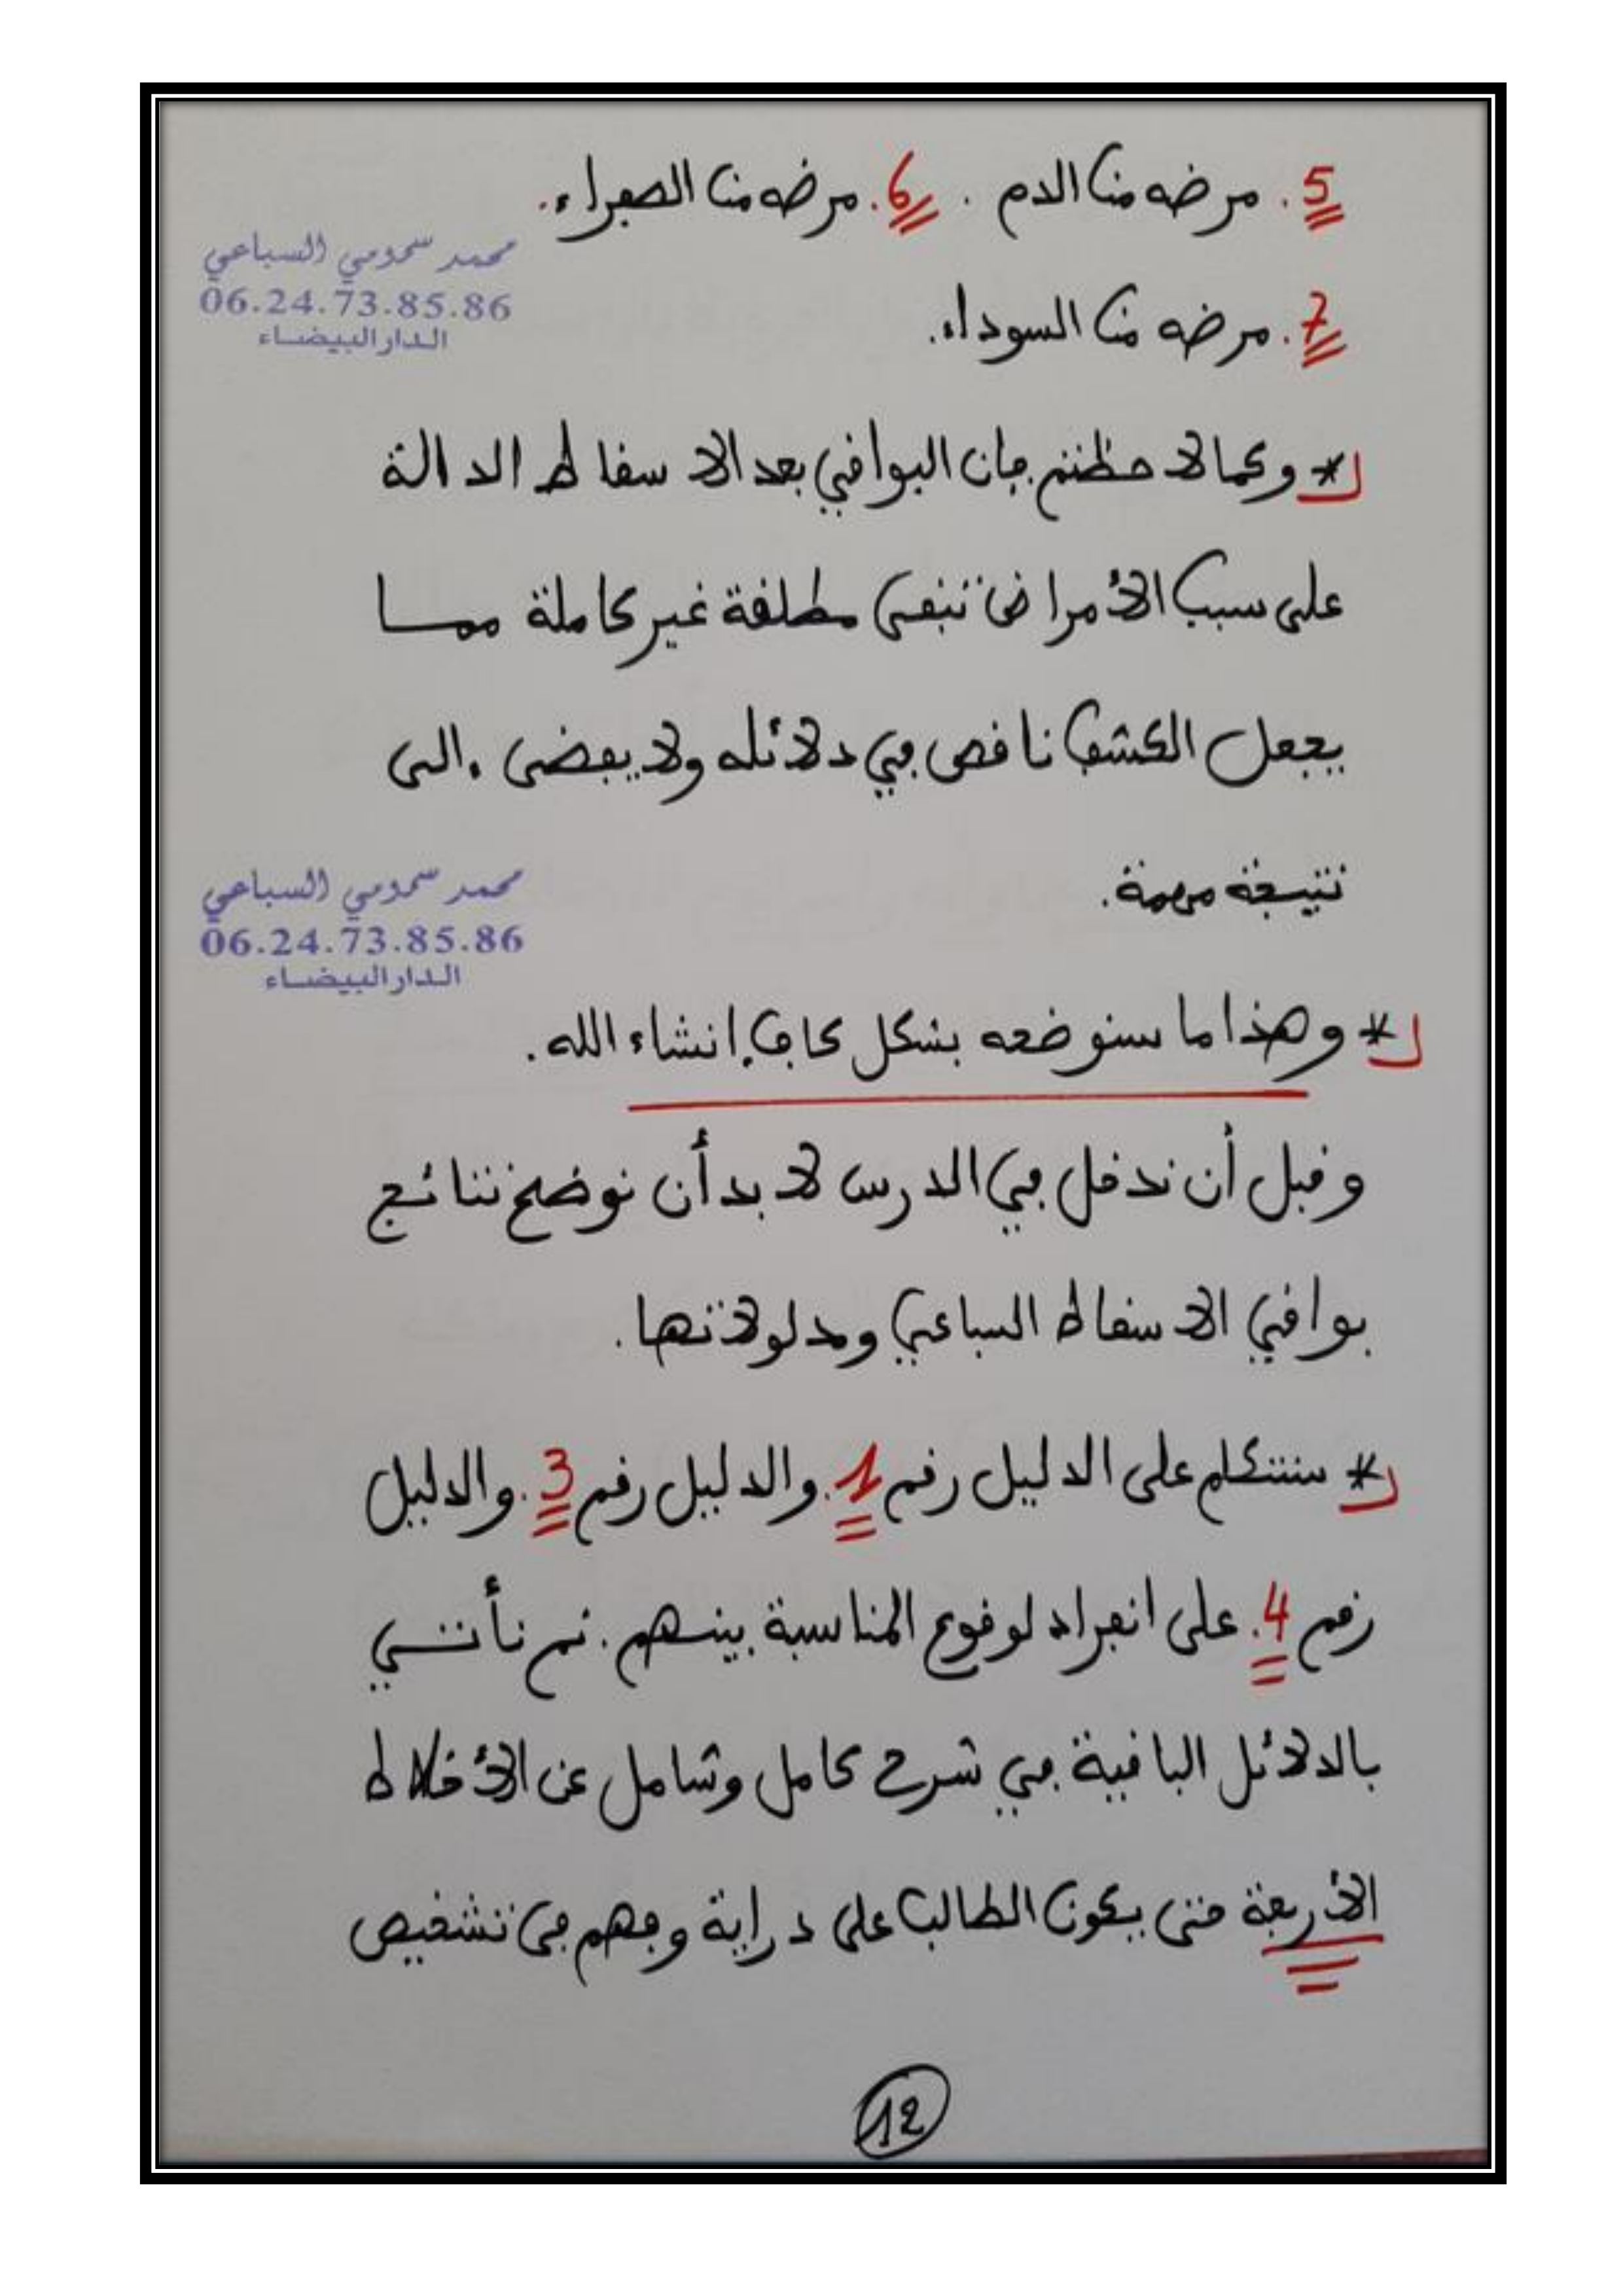 5. مرضه من الدم . 6. مرضه من الصفراء.
محمد سحومي السباعي
06.24.73.85.86
الدار البيضاء
7. مرضه من السوداء.
* وكما لاحظتم فإن البواقي بعد الاسقاط الدالة
على سبب الأمراض تبقى مطلقة غير كاملة ممـا
يجعل الكشف ناقص في دلائله ولا يفضى إلى
نتيجة مهمة.
محمد سحومي السباعي
06.24.73.85.86
الدار البيضاء
* وهذا ما سنوضحه بشكل كاف إنشاء الله.
وقبل أن ندخل في الدرس لا بد أن نوضح نتائج
بواقي الاسقاط السباعي ومدلولاتها.
* سنتكلم على الدليل رقم 1. والدليل رقم 3. والدليل
رقم 4. على انفراد لوقوع المناسبة بينهم. ثم نأتي
بالدلائل الباقية في شرح كامل وشامل عن الأخلاط
الأربعة حتى يكون الطالب على دراية وفهم في تشخيص
12